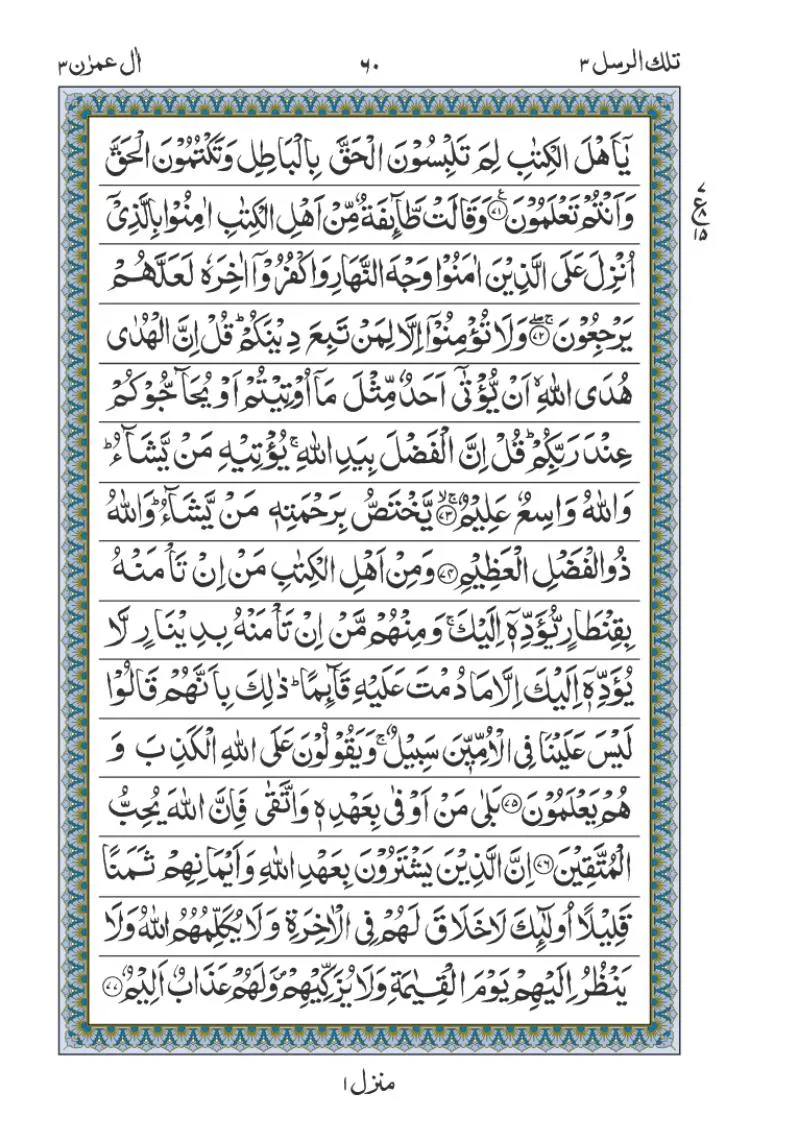 تلك الرسل ٣
٦٠
اٰل عمرٰن ٣
يٰۤاَهْلَ الْكِتٰبِ لِمَ تَلْبِسُوْنَ الْحَقَّ بِالْبَاطِلِ وَتَكْتُمُوْنَ الْحَقَّ
وَاَنْتُمْ تَعْلَمُوْنَ ﴿٧١﴾ وَقَالَتْ طَّآئِفَةٌ مِّنْ اَهْلِ الْكِتٰبِ اٰمِنُوْا بِالَّذِيْۤ
اُنْزِلَ عَلَى الَّذِيْنَ اٰمَنُوْا وَجْهَ النَّهَارِ وَاكْفُرُوْۤا اٰخِرَهٗ لَعَلَّهُمْ
يَرْجِعُوْنَ ﴿٧٢﴾ وَلَا تُؤْمِنُوْۤا اِلَّا لِمَنْ تَبِعَ دِيْنَكُمْ ؕ قُلْ اِنَّ الْهُدٰى
هُدَى اللّٰهِ ۙ اَنْ يُّؤْتٰۤى اَحَدٌ مِّثْلَ مَاۤ اُوْتِيْتُمْ اَوْ يُحَآجُّوْكُمْ
عِنْدَ رَبِّكُمْ ؕ قُلْ اِنَّ الْفَضْلَ بِيَدِ اللّٰهِ ۚ يُؤْتِيْهِ مَنْ يَّشَآءُ ؕ
وَاللّٰهُ وَاسِعٌ عَلِيْمٌ ﴿٧٣﴾ يَّخْتَصُّ بِرَحْمَتِهٖ مَنْ يَّشَآءُ ؕ وَاللّٰهُ
ذُو الْفَضْلِ الْعَظِيْمِ ﴿٧٤﴾ وَمِنْ اَهْلِ الْكِتٰبِ مَنْ اِنْ تَاْمَنْهُ
بِقِنْطَارٍ يُّؤَدِّهٖۤ اِلَيْكَ ۚ وَمِنْهُمْ مَّنْ اِنْ تَاْمَنْهُ بِدِيْنَارٍ لَّا
يُؤَدِّهٖۤ اِلَيْكَ اِلَّا مَا دُمْتَ عَلَيْهِ قَآئِمًا ؕ ذٰلِكَ بِاَنَّهُمْ قَالُوْا
لَيْسَ عَلَيْنَا فِى الْاُمِّيّٖنَ سَبِيْلٌ ۚ وَيَقُوْلُوْنَ عَلَى اللّٰهِ الْكَذِبَ وَ
هُمْ يَعْلَمُوْنَ ﴿٧٥﴾ بَلٰى مَنْ اَوْفٰى بِعَهْدِهٖ وَاتَّقٰى فَاِنَّ اللّٰهَ يُحِبُّ
الْمُتَّقِيْنَ ﴿٧٦﴾ اِنَّ الَّذِيْنَ يَشْتَرُوْنَ بِعَهْدِ اللّٰهِ وَاَيْمَانِهِمْ ثَمَنًا
قَلِيْلًا اُولٰٓئِكَ لَا خَلَاقَ لَهُمْ فِى الْاٰخِرَةِ وَلَا يُكَلِّمُهُمُ اللّٰهُ وَلَا
يَنْظُرُ اِلَيْهِمْ يَوْمَ الْقِيٰمَةِ وَلَا يُزَكِّيْهِمْ ۪ وَلَهُمْ عَذَابٌ اَلِيْمٌ ﴿٧٧﴾
٧
ع ٨
١٥
منزل ١